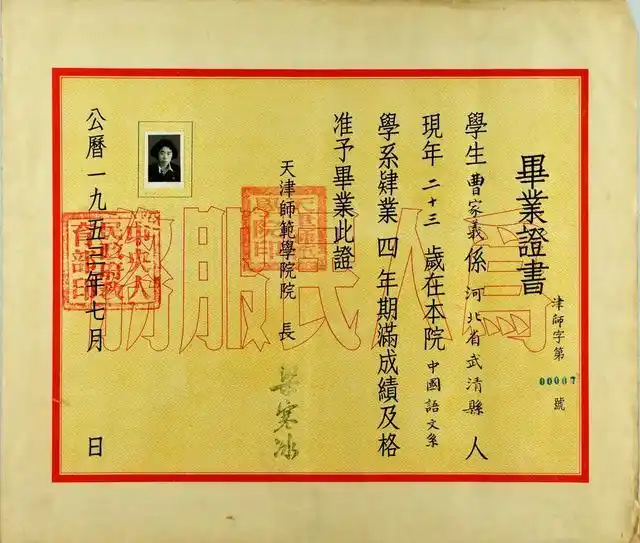 畢業證書
津師字第00007號
學生曹家義係河北省武清縣人
現年二十三歲在本院中國語文系
學系肄業四年期滿成績及格
准予畢業此證
天津師範學院院長 梁寒冰
公曆一九五三年七月 日
為人民服務